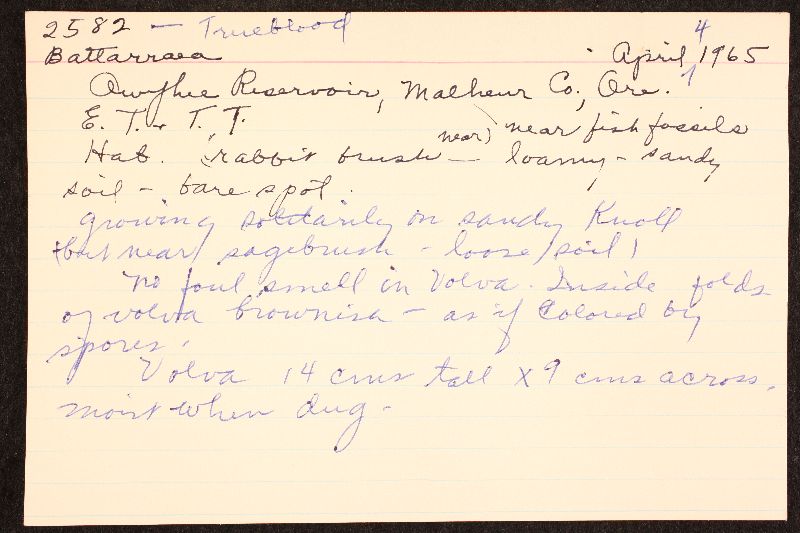 2582 - Trueblood
Battarraea April 4, 1965
Owyhee Reservoir, Malheur Co., Ore.
E. T. & T. T.
Hab. (near) rabbit brush - near fish fossils loamy - sandy
soil - bare spot.
growing solitarily in sandy Knoll
(but near) sagebrush - loose soil)
No foul smell in Volva. Inside folds
of volva brownish - as if colored by
spores.
Volva 14 cms tall x 9 cms across.
moist when dug -